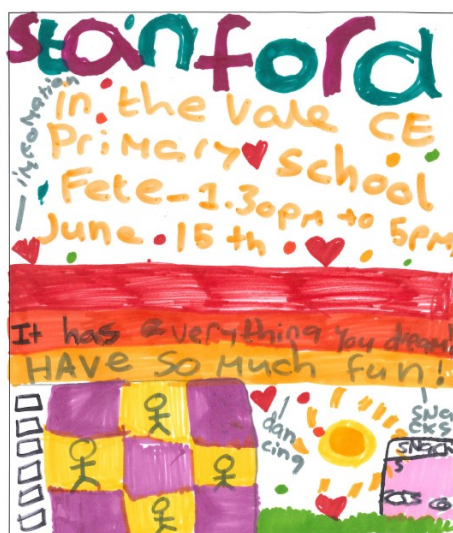 stanford
information
in the vale CE
Primary school
Fete-1.30pm to 5pm
June 15th
It has everything you dream!
HAVE So Much fun!
dan
cing
SNA
CKS